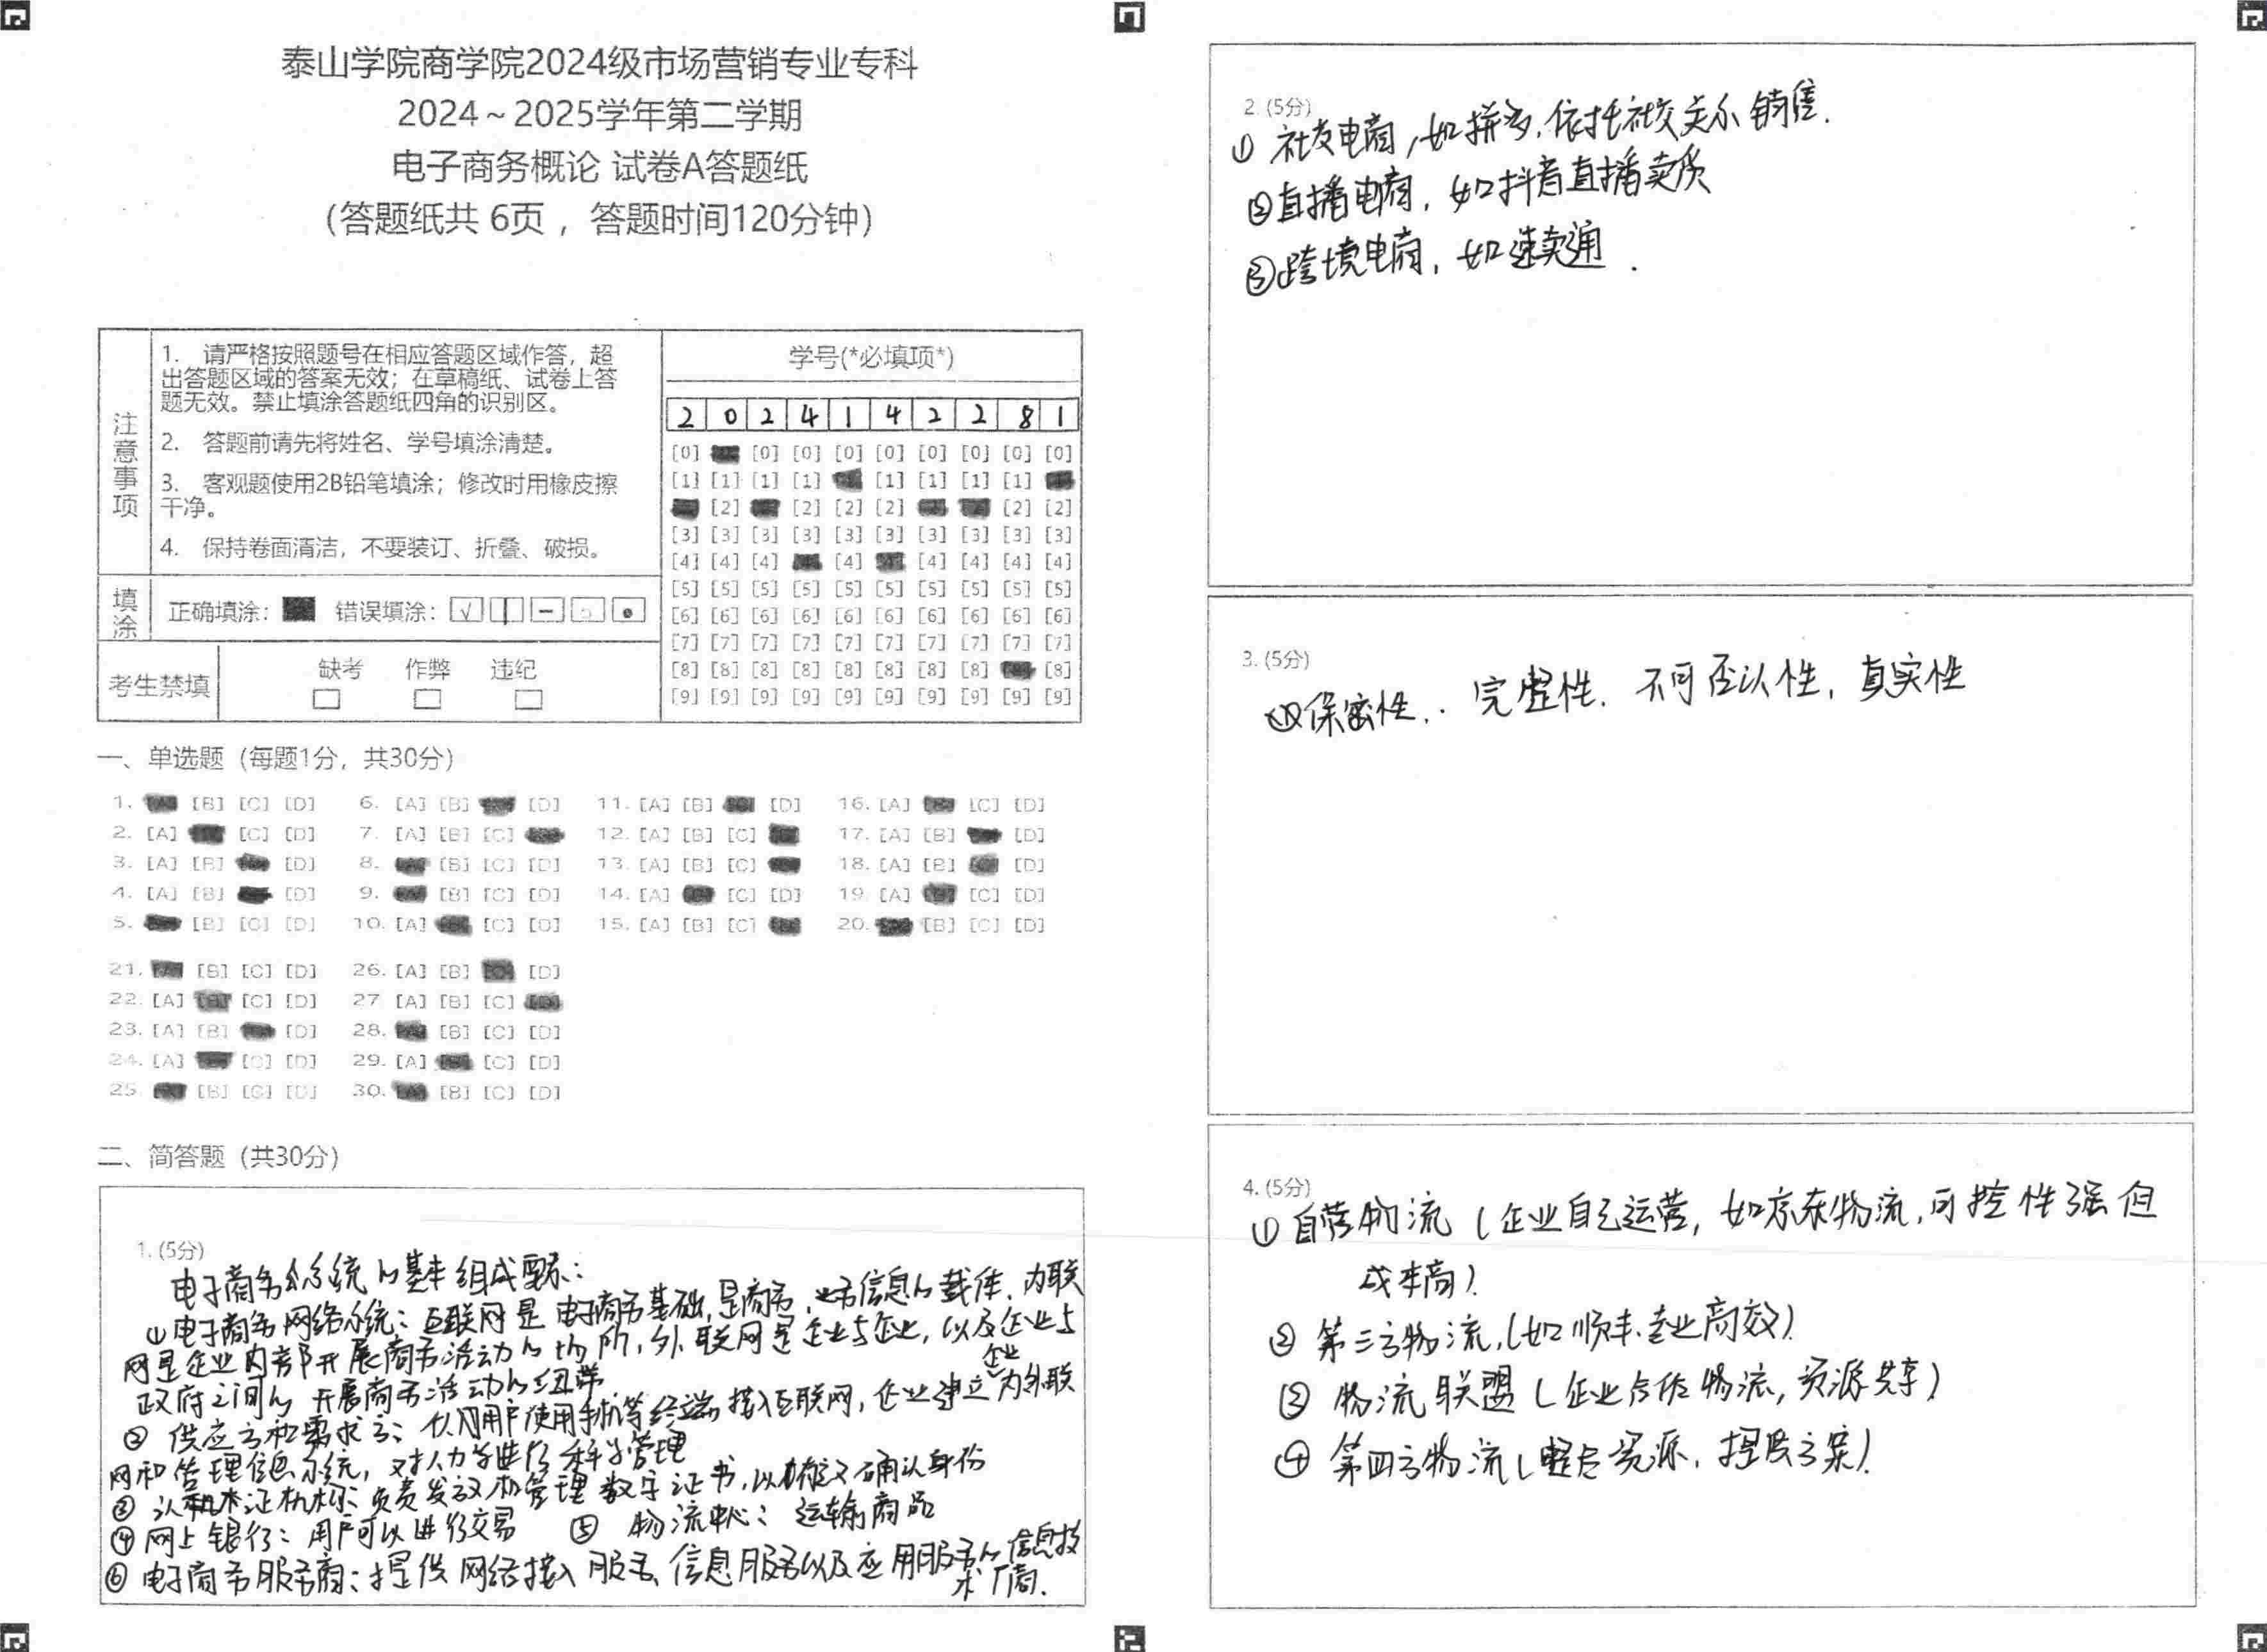 泰山学院商学院2024级市场营销专业专科
2024～2025学年第二学期
电子商务概论 试卷A答题纸
（答题纸共 6页 ，答题时间120分钟）
注意事项
1. 请严格按照题号在相应答题区域作答，超
出答题区域的答案无效；在草稿纸、试卷上答
题无效。禁止填涂答题纸四角的识别区。
2. 答题前请先将姓名、学号填涂清楚。
3. 客观题使用2B铅笔填涂；修改时用橡皮擦
干净。
4. 保持卷面清洁，不要装订、折叠、破损。
填涂
正确填涂： 错误填涂：
考生禁填
缺考 作弊 违纪
学号(*必填项*)
2 0 2 4 1 4 2 2 8 1
[0] [0] [0] [0] [0] [0] [0] [0] [0]
[1] [1] [1] [1] [1] [1] [1] [1]
[2] [2] [2] [2] [2] [2]
[3] [3] [3] [3] [3] [3] [3] [3] [3] [3]
[4] [4] [4] [4] [4] [4] [4] [4]
[5] [5] [5] [5] [5] [5] [5] [5] [5] [5]
[6] [6] [6] [6] [6] [6] [6] [6] [6] [6]
[7] [7] [7] [7] [7] [7] [7] [7] [7] [7]
[8] [8] [8] [8] [8] [8] [8] [8] [8]
[9] [9] [9] [9] [9] [9] [9] [9] [9] [9]
一、单选题（每题1分，共30分）
1. [B] [C] [D] 6. [A] [B] [D] 11. [A] [B] [D] 16. [A] [C] [D]
2. [A] [C] [D] 7. [A] [B] [C] 12. [A] [B] [C] 17. [A] [B] [D]
3. [A] [B] [D] 8. [B] [C] [D] 13. [A] [B] [C] 18. [A] [B] [D]
4. [A] [B] [D] 9. [B] [C] [D] 14. [A] [C] [D] 19. [A] [C] [D]
5. [B] [C] [D] 10. [A] [C] [D] 15. [A] [B] [C] 20. [B] [C] [D]
21. [B] [C] [D] 26. [A] [B] [D]
22. [A] [C] [D] 27. [A] [B] [C]
23. [A] [B] [D] 28. [B] [C] [D]
24. [A] [C] [D] 29. [A] [C] [D]
25. [B] [C] [D] 30. [B] [C] [D]
二、简答题（共30分）
1. (5分)
电子商务系统的基本组成要素：
①电子商务网络系统：互联网是电子商务基础，是商务、业务信息的载体，内联
网是企业内部开展商务活动的场所，外联网是企业与企业，以及企业与
政府之间的开展商务活动的纽带
② 供应方和需求方：个人用户使用手机等终端接入互联网，企业建立企业内外联
网和管理信息系统，对人力等进行科学管理
③ 认证机构：负责发放和管理数字证书，以确认身份
④ 网上银行：用户可以进行交易 ⑤ 物流中心：运输商品
⑥ 电子商务服务商：提供网络接入服务、信息服务以及应用服务的信息技
术厂商.
2. (5分)
① 社交电商，如拼多，依托社交关系销售.
②直播电商，如抖音直播卖货
③跨境电商，如速卖通.
3. (5分)
保密性，. 完整性. 不可否认性，真实性
4. (5分)
① 自营物流（企业自己运营，如京东物流，可控性强但
成本高）
② 第三方物流，（如顺丰.专业高效）
③ 物流联盟（企业合作物流，资源共享）
④ 第四方物流（整合资源，提供方案）